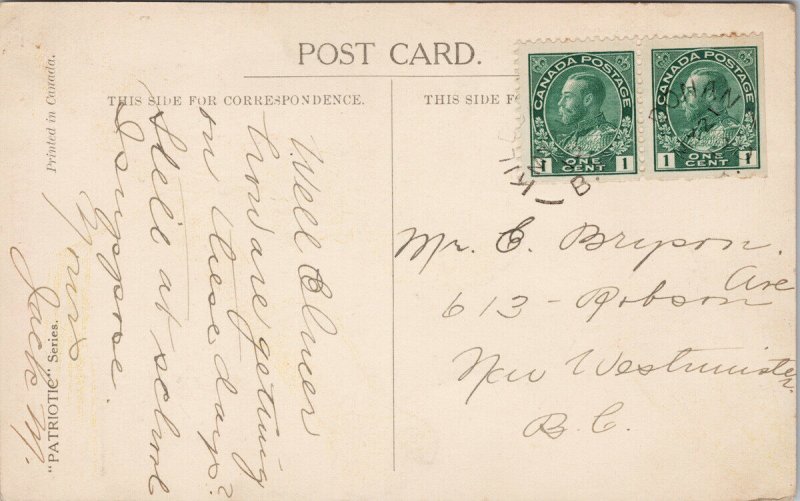 POST CARD.
THIS SIDE FOR CORRESPONDENCE.
THIS SIDE F
Printed in Canada.
"PATRIOTIC" Series.
CANADA POSTAGE
1 ONE CENT 1
CANADA POSTAGE
1 ONE CENT 1
B.
Well Elmer
how are getting
on these days?
Still at school
I suppose.
Yours
Jack M.
Mr. E. Bryson.
613 - Robson Ave
New Westminster
B.C.